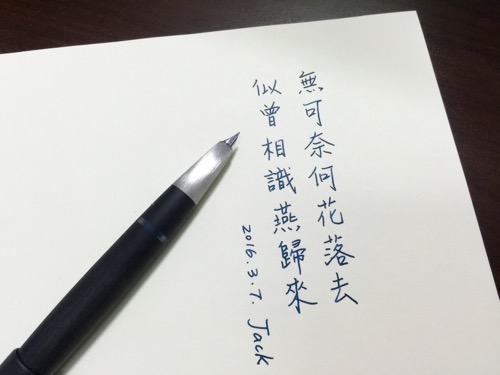 無可奈何花落去
似曾相識燕歸來
2016.3.7. Jack